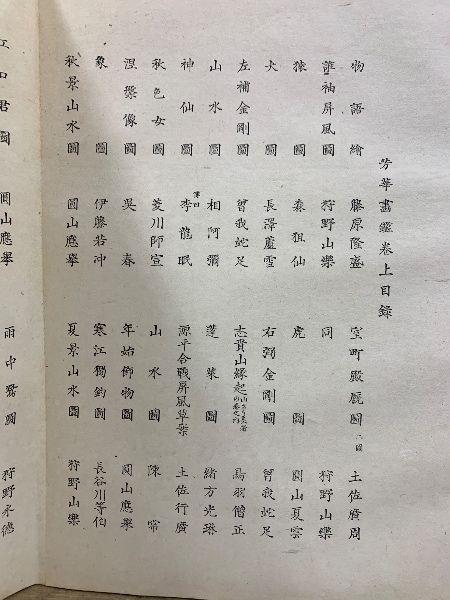 芳華畫鑑卷上目錄
物語繪 藤原隆盛 室町殿屁圖 二圖 土佐廣周
誰袖屏風 狩野山樂 同 狩野山樂
猿圖 森狙仙 虎圖 圓山應雲
犬圖 長澤蘆雪 右弼金剛圖 曾我蛇足
左補金剛圖 曾我蛇足 志貴山緣起 鳥羽僧正
山水圖 相阿彌 蓬萊圖 緒方光琳
神仙圖 傳曰 李龍眠 源平合戰屏風草案 土佐行廣
秋色女圖 菱川師宣 山水圖 陳常
涅槃像 吳春 年始飾物圖 圓山應擧
象圖 伊藤若冲 寒江獨釣圖 長谷川等伯
秋景山水圖 圓山應擧 夏景山水圖 狩野山樂
江口君圖 圓山應擧 雨中鷺圖 狩野永德